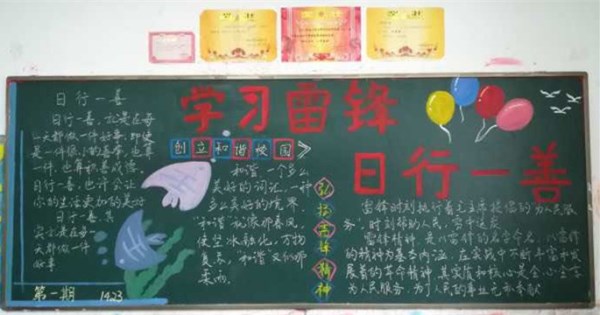 学习雷锋
日行一善
日行一善
日行一善，就是在每
一天都做一件好事，即使
是一件很小的善事，也算
一件，也算积善成德
日行一善，也许会让
你的生活更加的美好
日行一善，其
实就是在每一
天都做一件
好事
第一期 1423
创立和谐校园
和谐，一个多么
美好的词汇，一种
多么美好的境界
"和谐"就像那春风，
使坚冰融化，万物
复苏，和谐又似那
来雨，
弘扬雷锋精神
雷锋时刻执行着毛主席提倡的"为人民服
务"，时刻为人民，
雷锋精神，是以雷锋的名字命名，以雷锋
的精神为基本内涵，在实践中不断丰富和发
展着的革命精神，其实质和核心是全心全意
为人民服务，为了人民的事业无私奉献